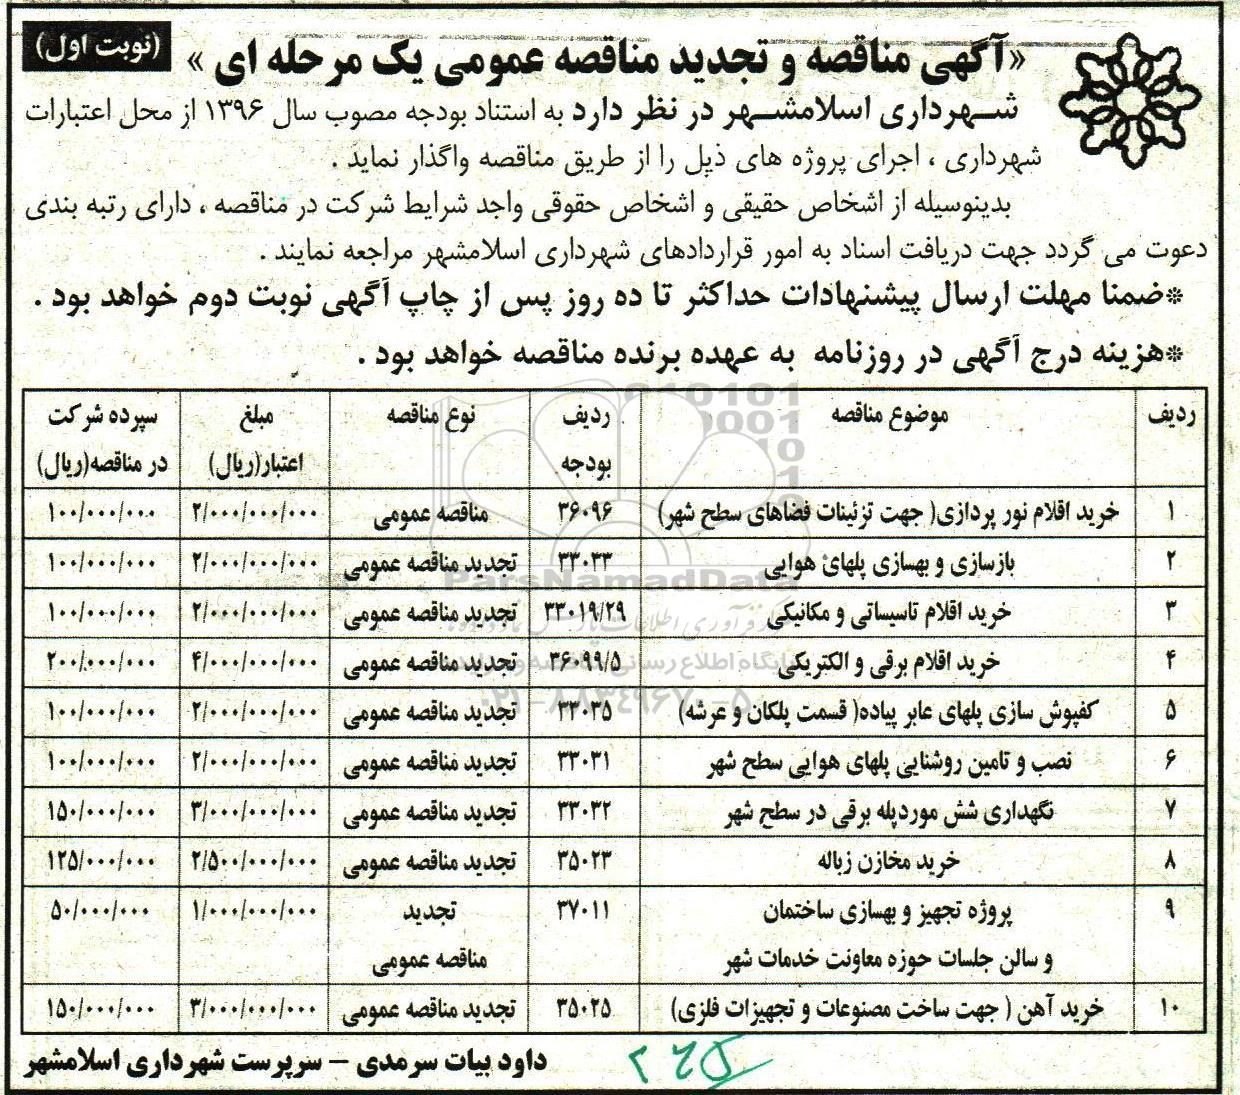 (نوبت اول)
«آگهی مناقصه و تجدید مناقصه عمومی یک مرحله ای »
شــهرداری اسلامشــهر در نظر دارد به استناد بودجه مصوب سال ۱۳۹۶ از محل اعتبارات
شهرداری ، اجرای پروژه های ذیل را از طریق مناقصه واگذار نماید .
بدینوسیله از اشخاص حقیقی و اشخاص حقوقی واجد شرایط شرکت در مناقصه ، دارای رتبه بندی
دعوت می گردد جهت دریافت اسناد به امور قراردادهای شهرداری اسلامشهر مراجعه نمایند .
*ضمنا مهلت ارسال پیشنهادات حداکثر تا ده روز پس از چاپ آگهی نوبت دوم خواهد بود .
*هزینه درج آگهی در روزنامه به عهده برنده مناقصه خواهد بود .
ردیف موضوع مناقصه ردیف نوع مناقصه مبلغ سپرده شرکت
بودجه اعتبار(ریال) در مناقصه(ریال)
۱ خرید اقلام نور پردازی( جهت تزئینات فضاهای سطح شهر) ۳۶۰۹۶ مناقصه عمومی ۲/۰۰۰/۰۰۰/۰۰۰ ۱۰۰/۰۰۰/۰۰۰
۲ بازسازی و بهسازی پلهای هوایی ۳۳۰۳۳ تجدید مناقصه عمومی ۲/۰۰۰/۰۰۰/۰۰۰ ۱۰۰/۰۰۰/۰۰۰
۳ خرید اقلام تاسیساتی و مکانیکی ۳۳۰۱۹/۲۹ تجدید مناقصه عمومی ۲/۰۰۰/۰۰۰/۰۰۰ ۱۰۰/۰۰۰/۰۰۰
۴ خرید اقلام برقی و الکتریکی ۳۶۰۹۹/۵ تجدید مناقصه عمومی ۴/۰۰۰/۰۰۰/۰۰۰ ۲۰۰/۰۰۰/۰۰۰
۵ کفپوش سازی پلهای عابر پیاده( قسمت پلکان و عرشه) ۳۳۰۳۵ تجدید مناقصه عمومی ۲/۰۰۰/۰۰۰/۰۰۰ ۱۰۰/۰۰۰/۰۰۰
۶ نصب و تامین روشنایی پلهای هوایی سطح شهر ۳۳۰۳۱ تجدید مناقصه عمومی ۲/۰۰۰/۰۰۰/۰۰۰ ۱۰۰/۰۰۰/۰۰۰
۷ نگهداری شش موردپله برقی در سطح شهر ۳۳۰۳۲ تجدید مناقصه عمومی ۳/۰۰۰/۰۰۰/۰۰۰ ۱۵۰/۰۰۰/۰۰۰
۸ خرید مخازن زباله ۳۵۰۲۳ تجدید مناقصه عمومی ۲/۵۰۰/۰۰۰/۰۰۰ ۱۲۵/۰۰۰/۰۰۰
۹ پروژه تجهیز و بهسازی ساختمان ۳۷۰۱۱ تجدید ۱/۰۰۰/۰۰۰/۰۰۰ ۵۰/۰۰۰/۰۰۰
و سالن جلسات حوزه معاونت خدمات شهر مناقصه عمومی
۱۰ خرید آهن ( جهت ساخت مصنوعات و تجهیزات فلزی) ۳۵۰۲۵ تجدید مناقصه عمومی ۳/۰۰۰/۰۰۰/۰۰۰ ۱۵۰/۰۰۰/۰۰۰
داود بیات سرمدی – سرپرست شهرداری اسلامشهر
ParsNamadData
۰۲۱-۸۸۳۴۹۶۷۰-۵